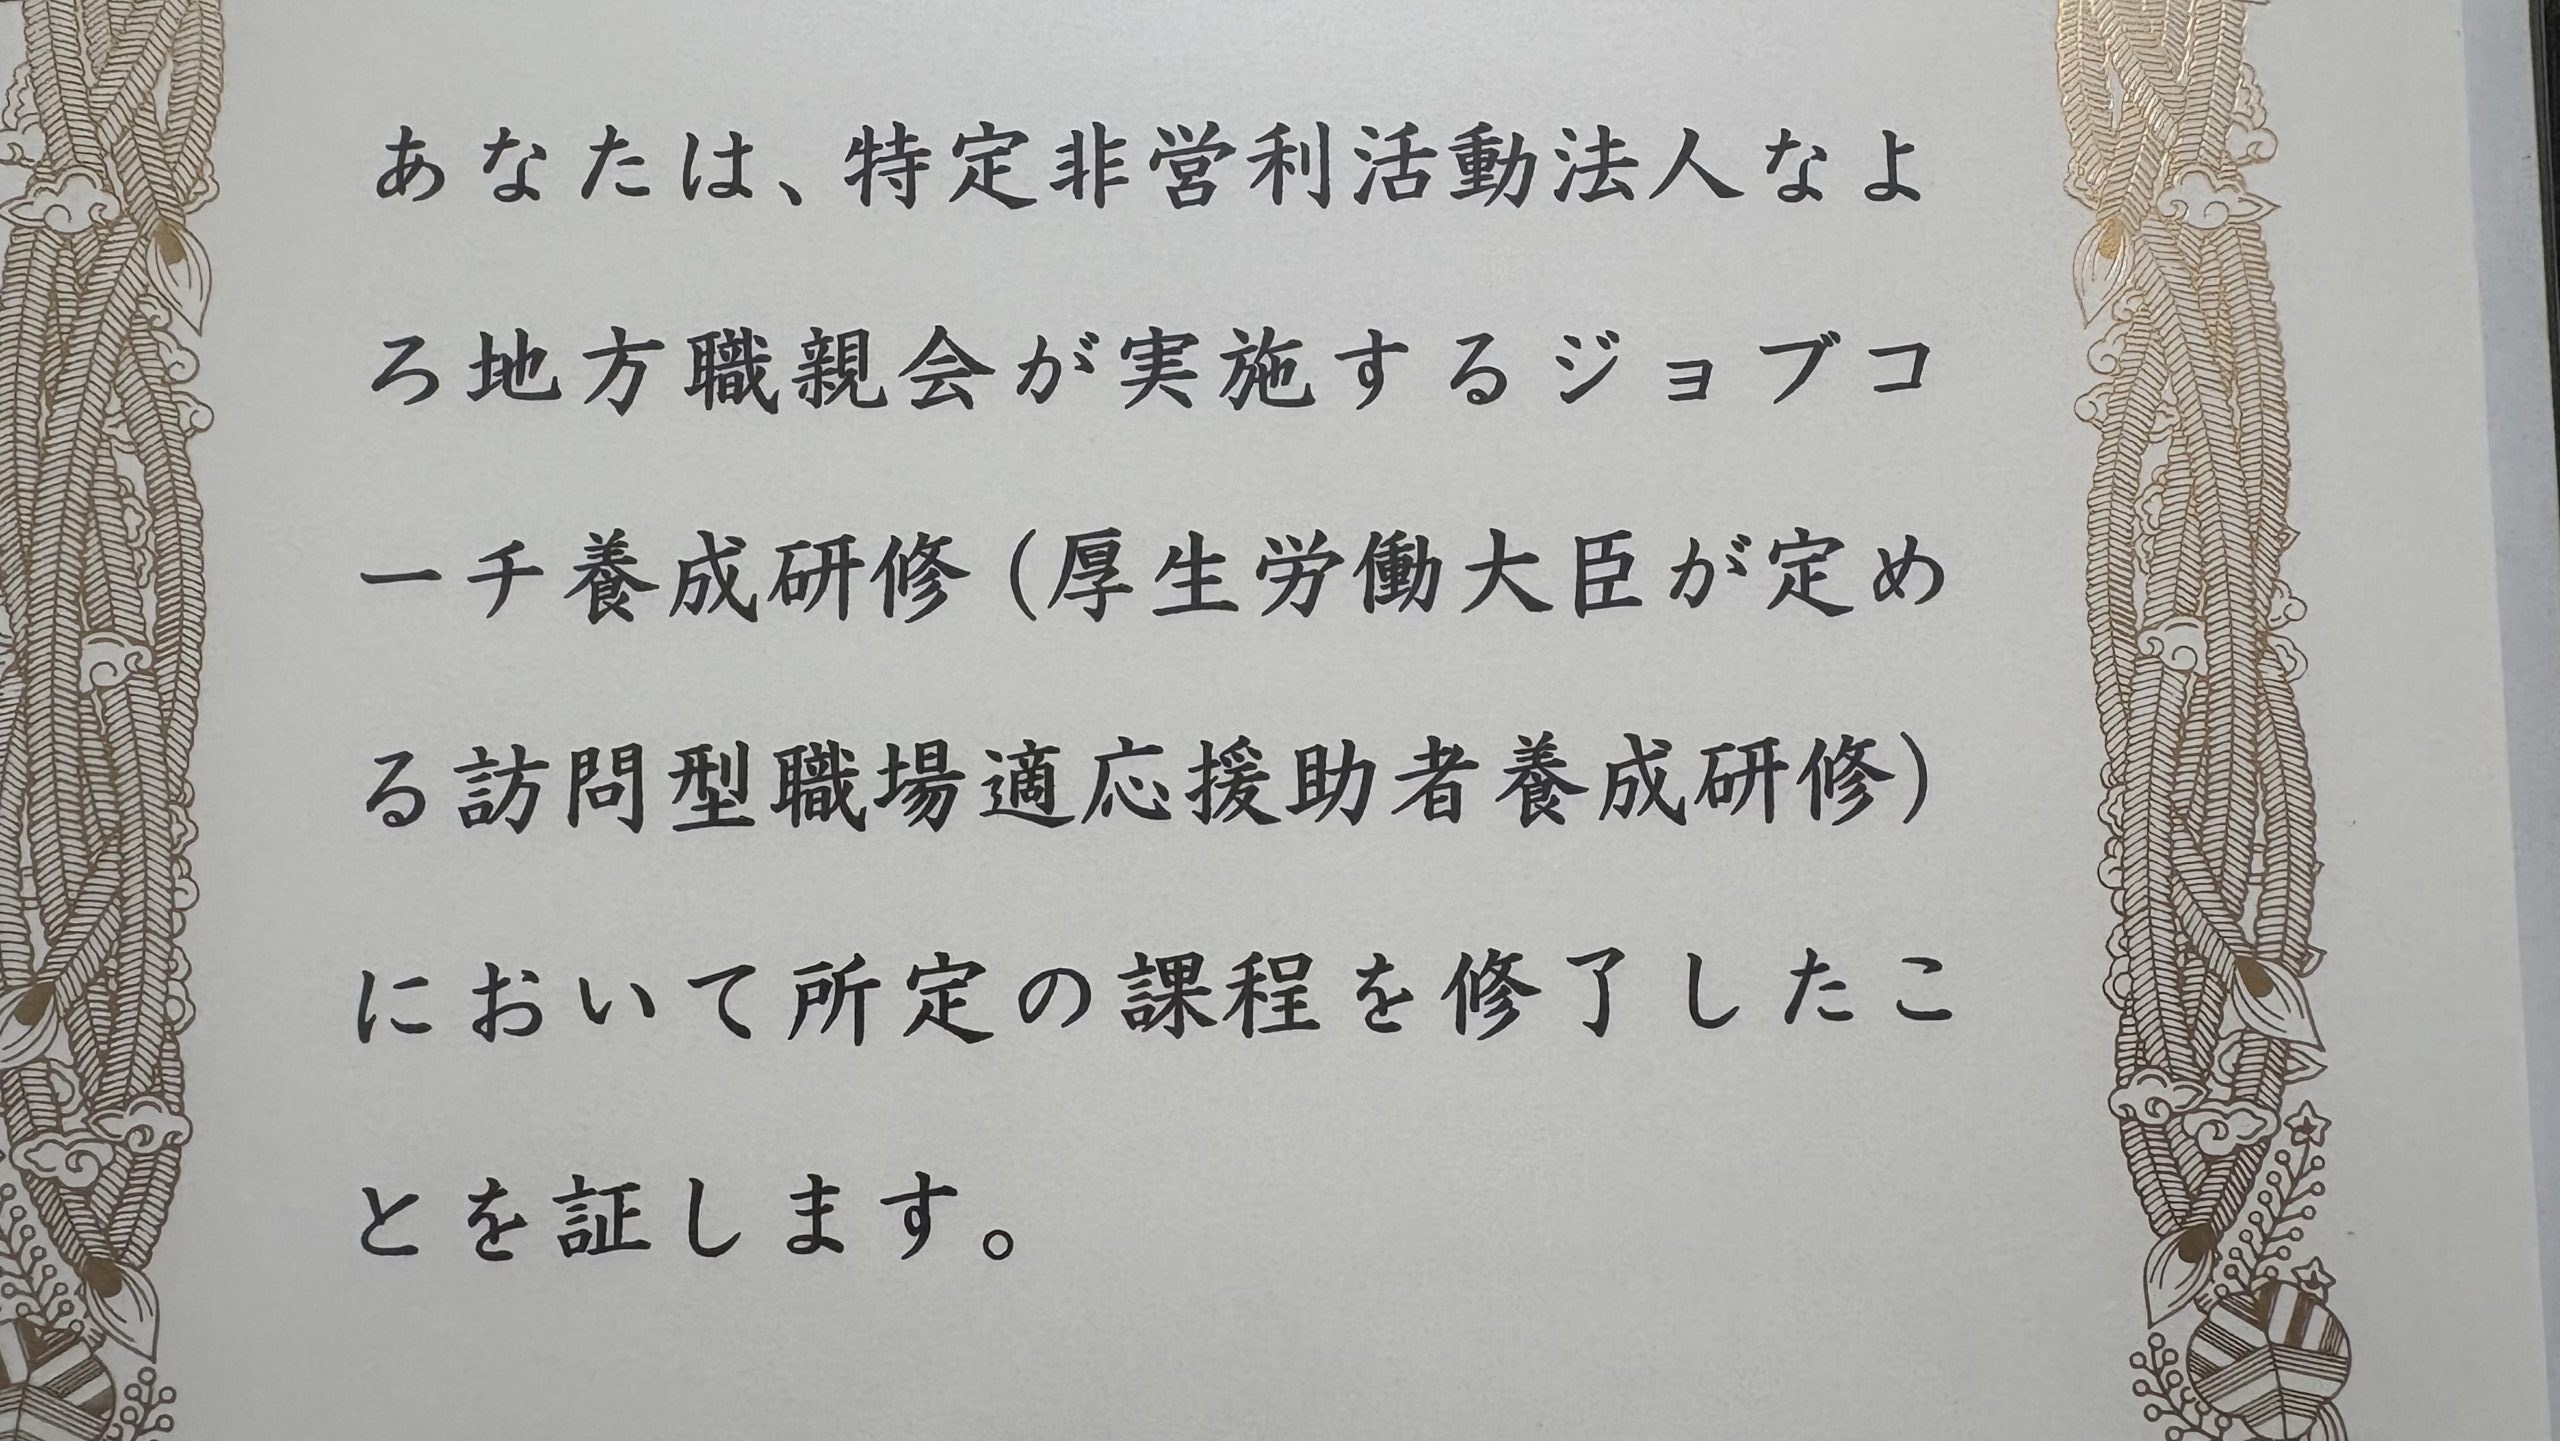 あなたは、特定非営利活動法人なよ
ろ地方職親会が実施するジョブコ
ーチ養成研修（厚生労働大臣が定め
る訪問型職場適応援助者養成研修）
において所定の課程を修了したこ
とを証します。